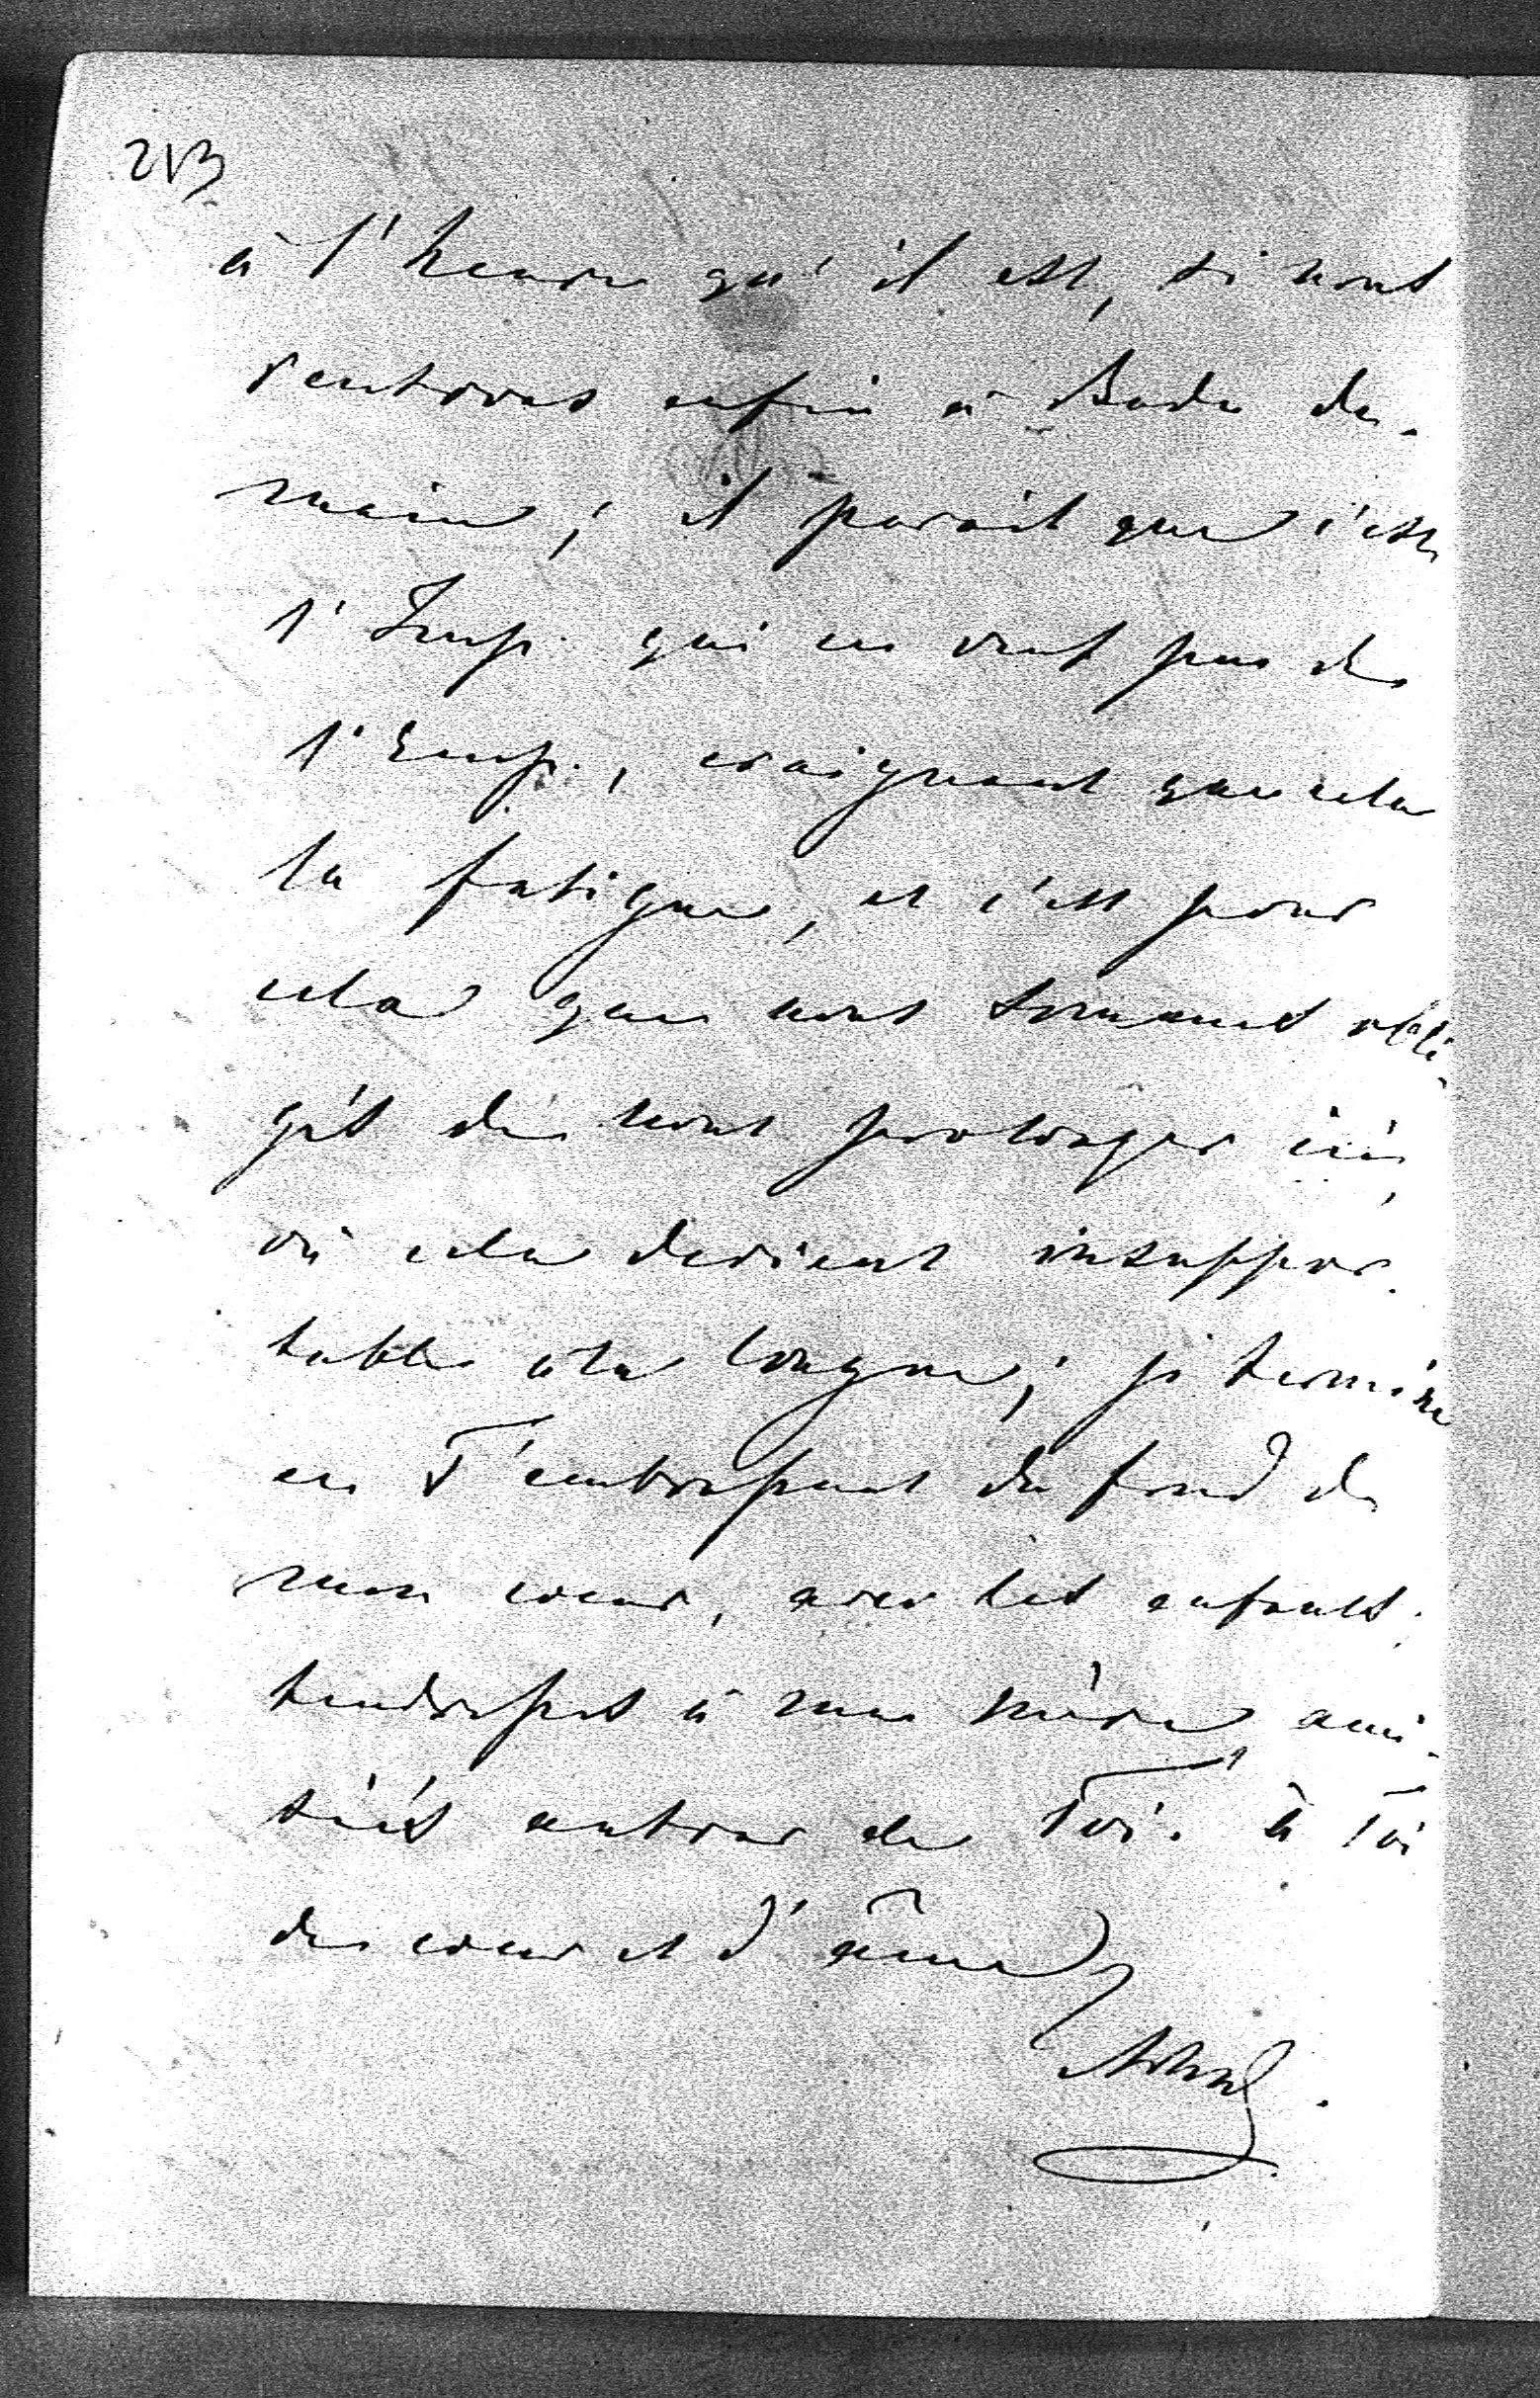 213
à l'heure qu'il est, si nous
rentrons enfin à Bude de-
main; il parait que c'est
l'Imp. qui ne veut pas de
l'Emp., craignant que cela
la fatigue, et c'est pour
cela que nous sommes obli-
gés de nous prolonger ici,
où cela devient insuppor-
table à la longue; je termine
en T'embrassant du fond de
mon coeur, avec les enfants;
tendresses à ma mère ami-
tiés autour de Toi. à Toi
de coeur et d'âme